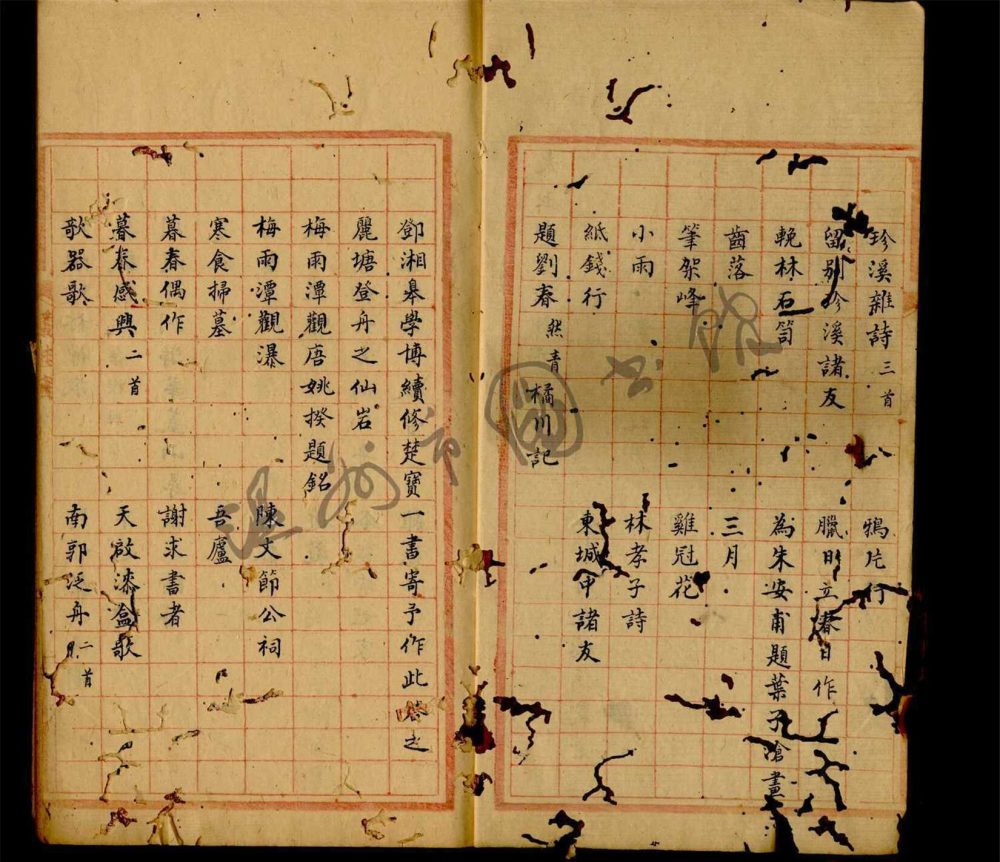 珍溪雜詩三首 鴉片行
留別珍溪諸友 臘日立春日作
輓林石笥 為朱安甫題葉子滄畫
齒落 三月
筆架峰 雞冠花
小雨 林孝子詩
紙錢行 東堿甲諸友
題劉春 然青 橘川記
鄧湘皋學博續修楚寶一書寄予作此答之
麗塘登舟之仙岩
梅雨潭觀唐姚揆題銘
梅雨潭觀瀑 陳文節公祠
寒食掃墓 吾廬
暮春偶作 謝求書者
暮春感興二首 天啟漆盒歌
歌器歌 南郭泛舟二首
溫州市圖書館